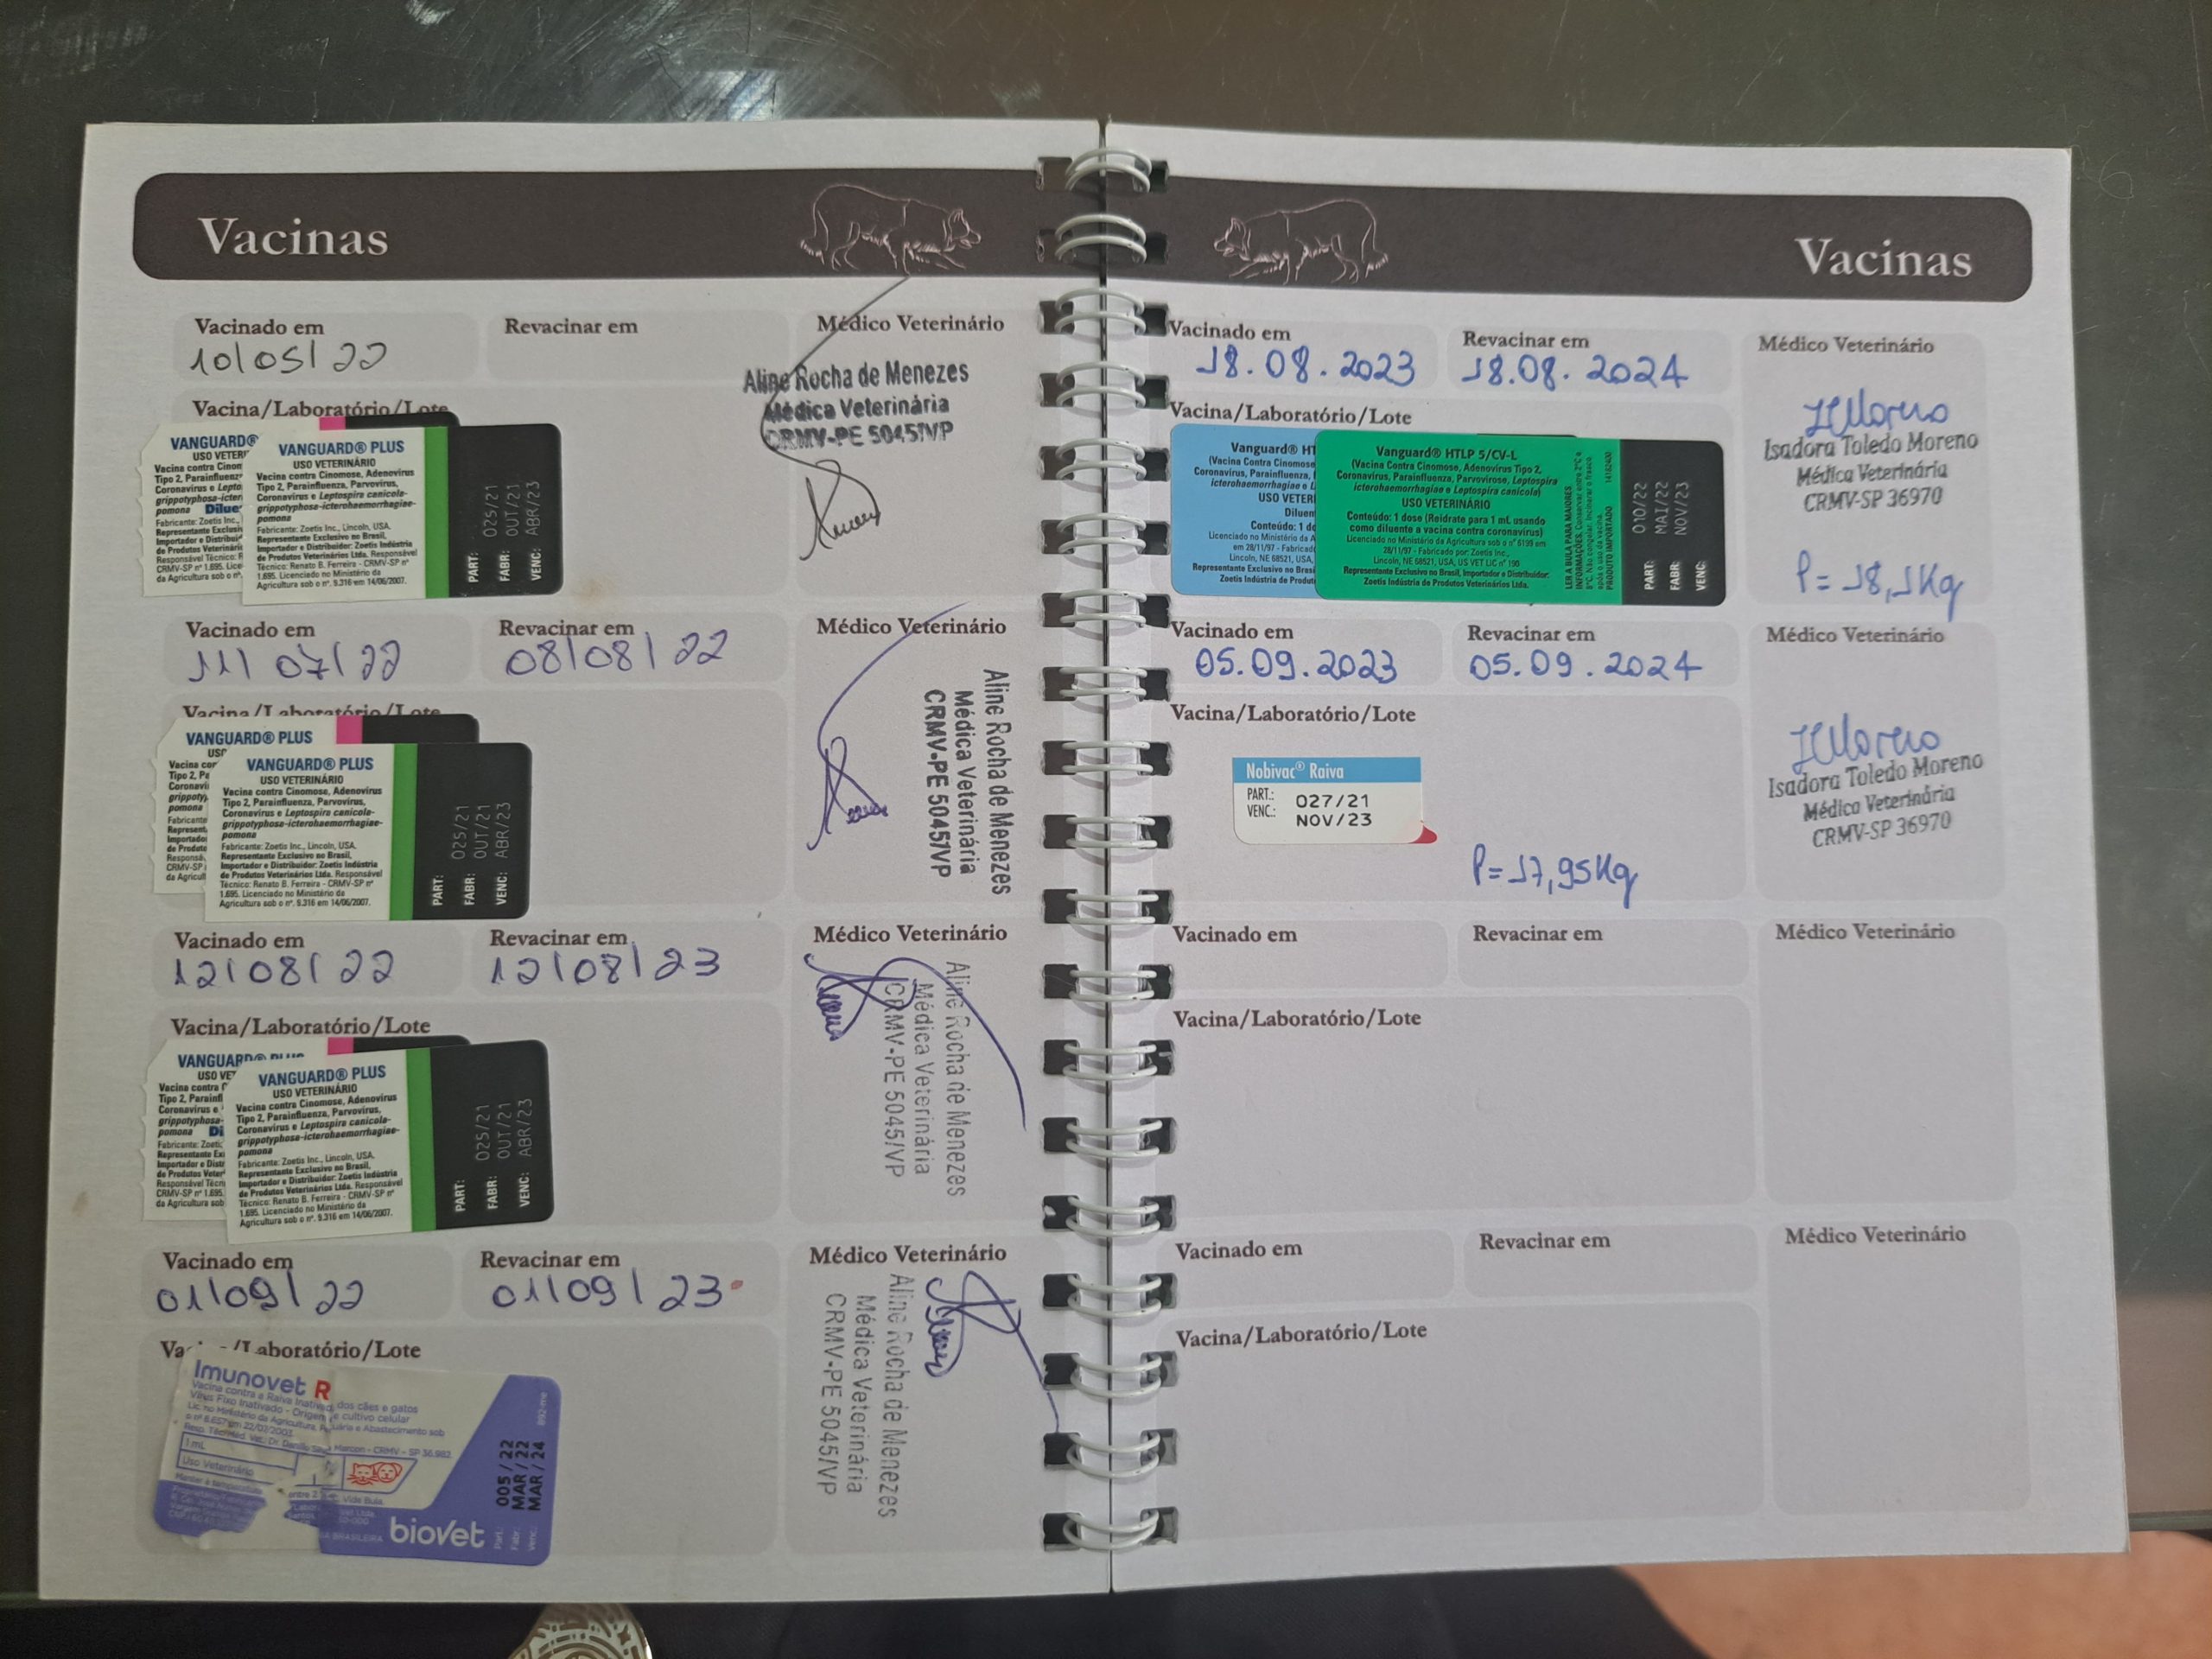 Vacinas
Vacinado em
10/05/22
Revacinar em
Médico Veterinário
Aline Rocha de Menezes
Médica Veterinária
CRMV-PE 5045/VP
Vacina/Laboratório/Lote
VANGUARD®
USO VETER
Vacina contra Cinom
Tipo 2, Parainfluenz
Coronavírus e Lepto
grippotyphosa-icter
pomona Dilue
Fabricante: Zoetis Inc.,
Representante Exclusi
Importador e Distribui
de Produtos Veterinári
Responsável Técnico: R
CRMV-SP nº 1.695. Lice
da Agricultura sob o nº.
VANGUARD® PLUS
USO VETERINÁRIO
Vacina contra Cinomose, Adenovírus
Tipo 2, Parainfluenza, Parvovírus,
Coronavírus e Leptospira canicola-
grippotyphosa-icterohaemorrhagiae-
pomona
Fabricante: Zoetis Inc., Lincoln, USA.
Representante Exclusivo no Brasil,
Importador e Distribuidor: Zoetis Indústria
de Produtos Veterinários Ltda. Responsável
Técnico: Renato B. Ferreira - CRMV-SP nº
1.695. Licenciado no Ministério da
Agricultura sob o nº. 9.316 em 14/06/2007.
PART: 025/21
FABR: OUT/21
VENC: ABR/23
Vacinado em
11/07/22
Revacinar em
08/08/22
Médico Veterinário
Aline Rocha de Menezes
Médica Veterinária
CRMV-PE 5045/VP
Vacina/Laboratório/Lote
VANGUARD® PLUS
Vacina cor
Tipo 2, Pa
Coronaví
grippoty
pomona
Fabricante
Represent
Importado
de Produto
Responsá
CRMV-SP
da Agricul
VANGUARD® PLUS
USO VETERINÁRIO
Vacina contra Cinomose, Adenovírus
Tipo 2, Parainfluenza, Parvovírus,
Coronavírus e Leptospira canicola-
grippotyphosa-icterohaemorrhagiae-
pomona
Fabricante: Zoetis Inc., Lincoln, USA.
Representante Exclusivo no Brasil,
Importador e Distribuidor: Zoetis Indústria
de Produtos Veterinários Ltda. Responsável
Técnico: Renato B. Ferreira - CRMV-SP nº
1.695. Licenciado no Ministério da
Agricultura sob o nº. 9.316 em 14/06/2007.
PART: 025/21
FABR: OUT/21
VENC: ABR/23
Vacinado em
12/08/22
Revacinar em
12/08/23
Médico Veterinário
Aline Rocha de Menezes
Médica Veterinária
CRMV-PE 5045/VP
Vacina/Laboratório/Lote
VANGUARD® PLUS
USO VET
Vacina contra C
Tipo 2, Parainfl
Coronavírus e
grippotyphosa-
pomona Di
Fabricante: Zoeti
Representante Ex
Importador e Distr
de Produtos Veter
Responsável Técn
CRMV-SP nº 1.695.
da Agricultura sob
VANGUARD® PLUS
USO VETERINÁRIO
Vacina contra Cinomose, Adenovírus
Tipo 2, Parainfluenza, Parvovírus,
Coronavírus e Leptospira canicola-
grippotyphosa-icterohaemorrhagiae-
pomona
Fabricante: Zoetis Inc., Lincoln, USA.
Representante Exclusivo no Brasil,
Importador e Distribuidor: Zoetis Indústria
de Produtos Veterinários Ltda. Responsável
Técnico: Renato B. Ferreira - CRMV-SP nº
1.695. Licenciado no Ministério da
Agricultura sob o nº. 9.316 em 14/06/2007.
PART: 025/21
FABR: OUT/21
VENC: ABR/23
Vacinado em
01/09/22
Revacinar em
01/09/23
Médico Veterinário
Aline Rocha de Menezes
Médica Veterinária
CRMV-PE 5045/VP
/Laboratório/Lote
Imunovet R
Vacina contra a Raiva dos cães e gatos
Vírus Fixo Inativado - Origem cultivo celular
Lic. no Ministério da Agricultura, e Abastecimento sob
1 mL
Uso Veterinário
Vide Bula.
biovet
Part.: 005/22
Fabr.: MAR/22
Venc.: MAR/24
Vacinas
Vacinado em
18.08.2023
Revacinar em
18.08.2024
Médico Veterinário
Isadora Toledo Moreno
Médica Veterinária
CRMV-SP 36970
P=18,1Kg
Vacina/Laboratório/Lote
Vanguard® HT
(Vacina Contra Cinomose
Coronavírus, Parainfluenza,
icterohaemorrhagiae e L
USO VETER
Diluen
Conteúdo: 1 do
Licenciado no Ministério da A
em 28/11/97 - Fabricad
Lincoln, NE 68521, USA,
Representante Exclusivo no Bras
Zoetis Indústria de Produt
Vanguard® HTLP 5/CV-L
(Vacina Contra Cinomose, Adenovírus Tipo 2,
Coronavírus, Parainfluenza, Parvovirose, Leptospira
icterohaemorrhagiae e Leptospira canicola)
USO VETERINÁRIO
Conteúdo: 1 dose (Reidrate para 1 mL usando
como diluente a vacina contra coronavírus)
Licenciado no Ministério da Agricultura sob o nº 6199 em
28/11/97 - Fabricado por: Zoetis Inc.,
Lincoln, NE 68521, USA, US VET LIC nº 190
Representante Exclusivo no Brasil, Importador e Distribuidor:
Zoetis Indústria de Produtos Veterinários Ltda.
LER A BULA PARA MAIORES
INFORMAÇÕES. Conservar entre 2°C e
8°C. Não congelar. Incinerar o frasco
após o uso da vacina.
PRODUTO IMPORTADO 14182400
PART: 010/22
FABR: MAI/22
VENC: NOV/23
Vacinado em
05.09.2023
Revacinar em
05.09.2024
Médico Veterinário
Isadora Toledo Moreno
Médica Veterinária
CRMV-SP 36970
Vacina/Laboratório/Lote
Nobivac® Raiva
PART.: 027/21
VENC.: NOV/23
P=17,95Kg
Vacinado em
Revacinar em
Médico Veterinário
Vacina/Laboratório/Lote
Vacinado em
Revacinar em
Médico Veterinário
Vacina/Laboratório/Lote